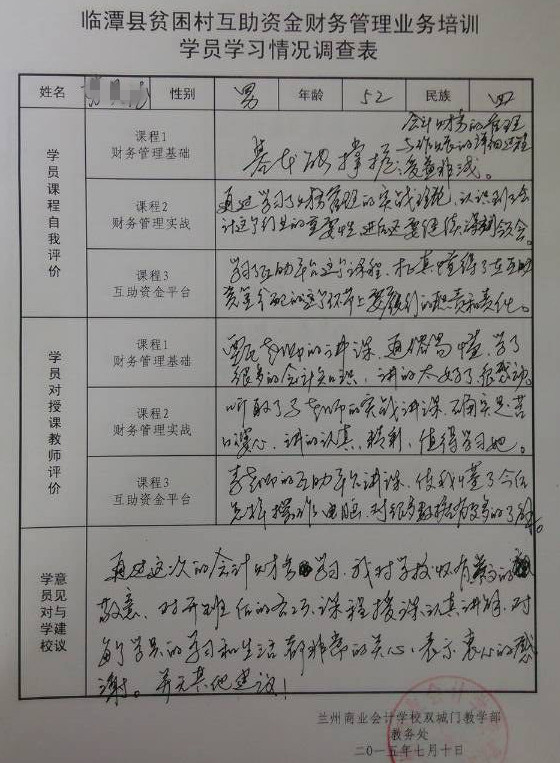 临潭县贫困村互助资金财务管理业务培训
学员学习情况调查表
姓名 性别 男 年龄 52 民族 回
学员课程自我评价
课程1
财务管理基础
会计财务的管理
基本的掌握
课程2
财务管理实战
通过学习了财务管理的实战理论，认识到了会
计这个行业的重要性，进后还要继续深刻领会。
课程3
互助资金平台
学习了互助平台这个课程，懂得了在互助
资金分配的这个环节上要我们的职责和责任。
学员对授课教师评价
课程1
财务管理基础
老师的讲课，通俗易懂，学了
很多的会计知识，讲的太好了很感动。
课程2
财务管理实战
听取了 老师的实战讲课，确实是苦
口婆心，讲的认真、精彩，值得学习她。
课程3
互助资金平台
李老师的互助平台讲课，使我懂了今后
怎样操作电脑，对很多数据有更多的了解。
学员对学校意见与建议
通过这次的会计财务学习，我对学校怀有 的
敬意，对开班后的各项课程授课认真讲解，对
每个学员的学习和生活都非常的关心，表示衷心的感
谢。并无其他建议！
兰州商业会计学校双城门教学部
教务处
二〇一五年七月十日